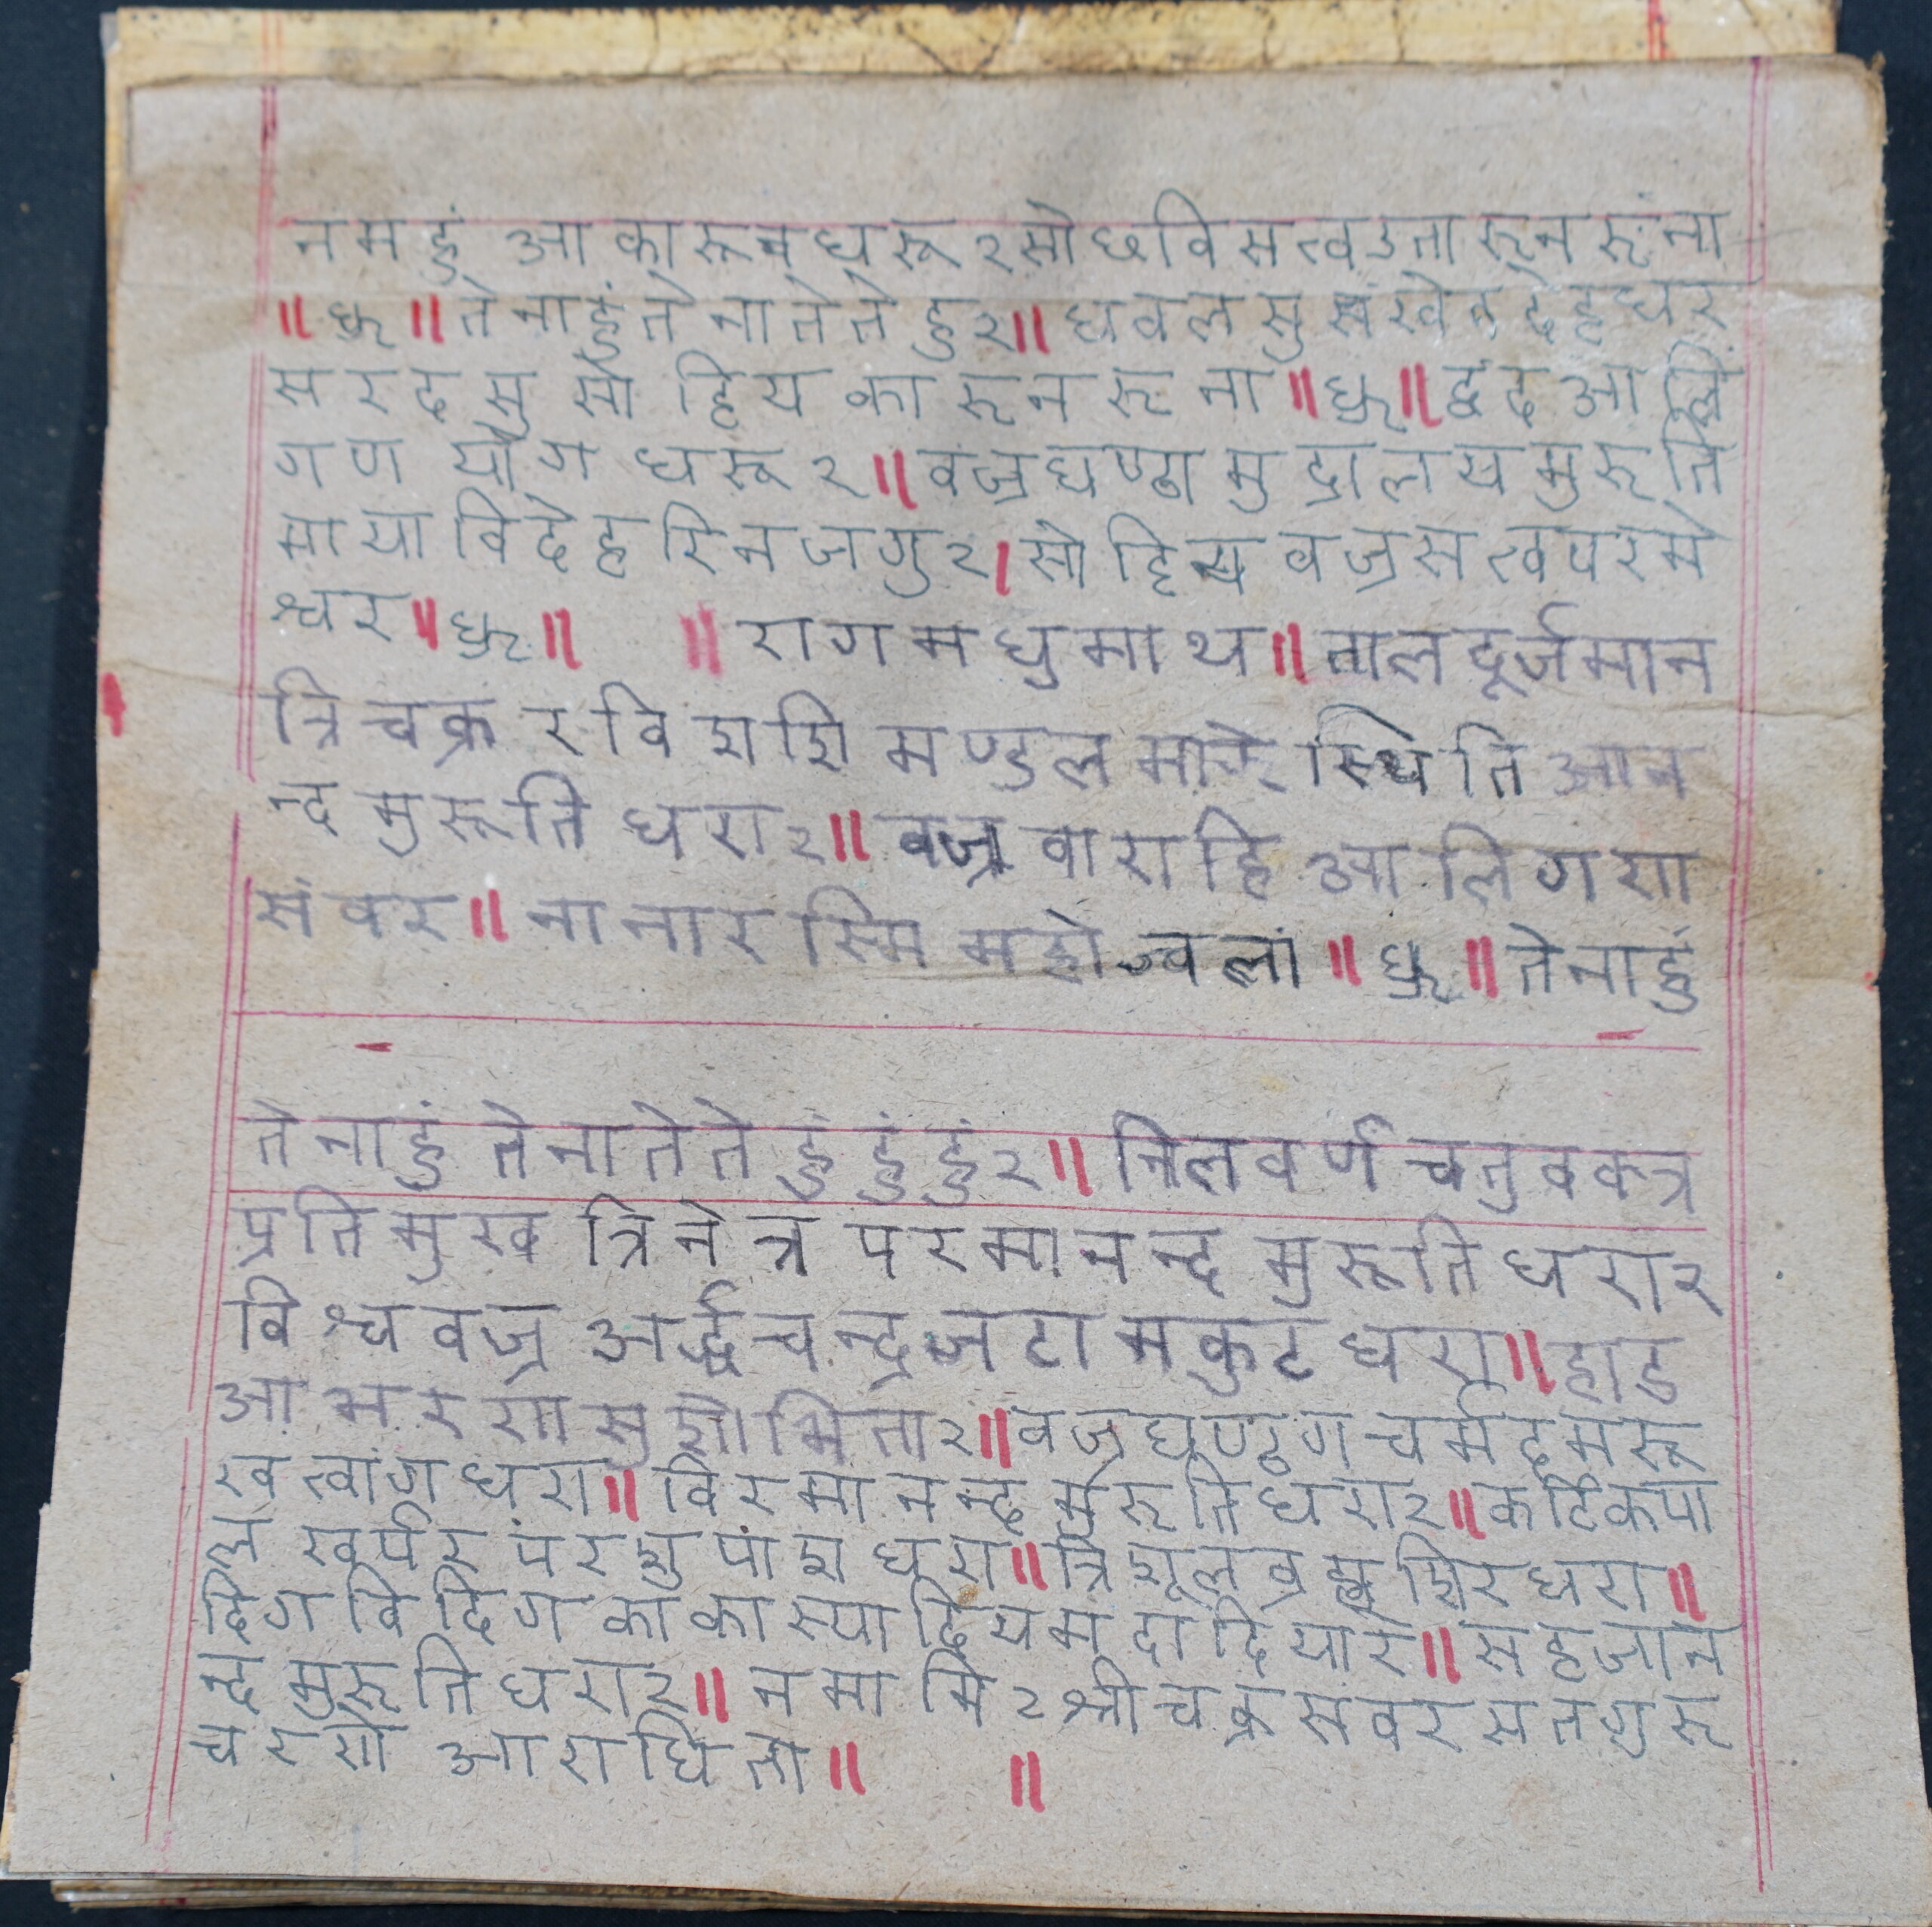 नमहुं आकारूनधरू२सोछविसत्वउतारूनरूंना
॥ध्रू॥तेनाहुंतेनातेतेहुर॥धवलसुसंखेनदेहधर
सरदसुसोहियकारूनरूना॥ध्रू॥द्वंदआलिं
गण योग धरूर॥वज्रघण्ठामुद्रालयमुरूति
मायाविदेहरिनजगुर।सोहियवज्रसत्वपरमे
श्वर॥ध्रू॥ ॥रागमधुमाथ॥तालदूर्जमान
त्रिचक्र रविशशि मण्डलमाझे स्थिति आन
न्दमुरूतिधरा२॥वज्रवाराहि आलिंगणा
संवर॥नानारस्मि महोज्वला॥ध्रू॥तेनाहुं
तेनाहुं तेनातेते हुं हुं हुं२॥निलवर्ण चतुवक्त्र
प्रतिमुख त्रिनेत्र परमानन्दमुरूतिधरा२
विश्ववज्र अर्द्धचन्द्रजटामकुटधरा॥हाड
आभरणासुशोभिता२॥वज्रघण्ठगचर्मदमरू
खत्वांगधरा॥विरमानन्दमुरूतिधरा२॥कर्टिकपा
ल खर्पर परशुपाशधरा॥त्रिशूलब्रह्मशिरधरा॥
दिगविदिगकाकास्यादियमदादिया२॥सहजान
न्दमुरूतिधरा२॥नमामि२श्रीचक्रसंवरसतगुरू
चरणे आराधिता॥ ॥